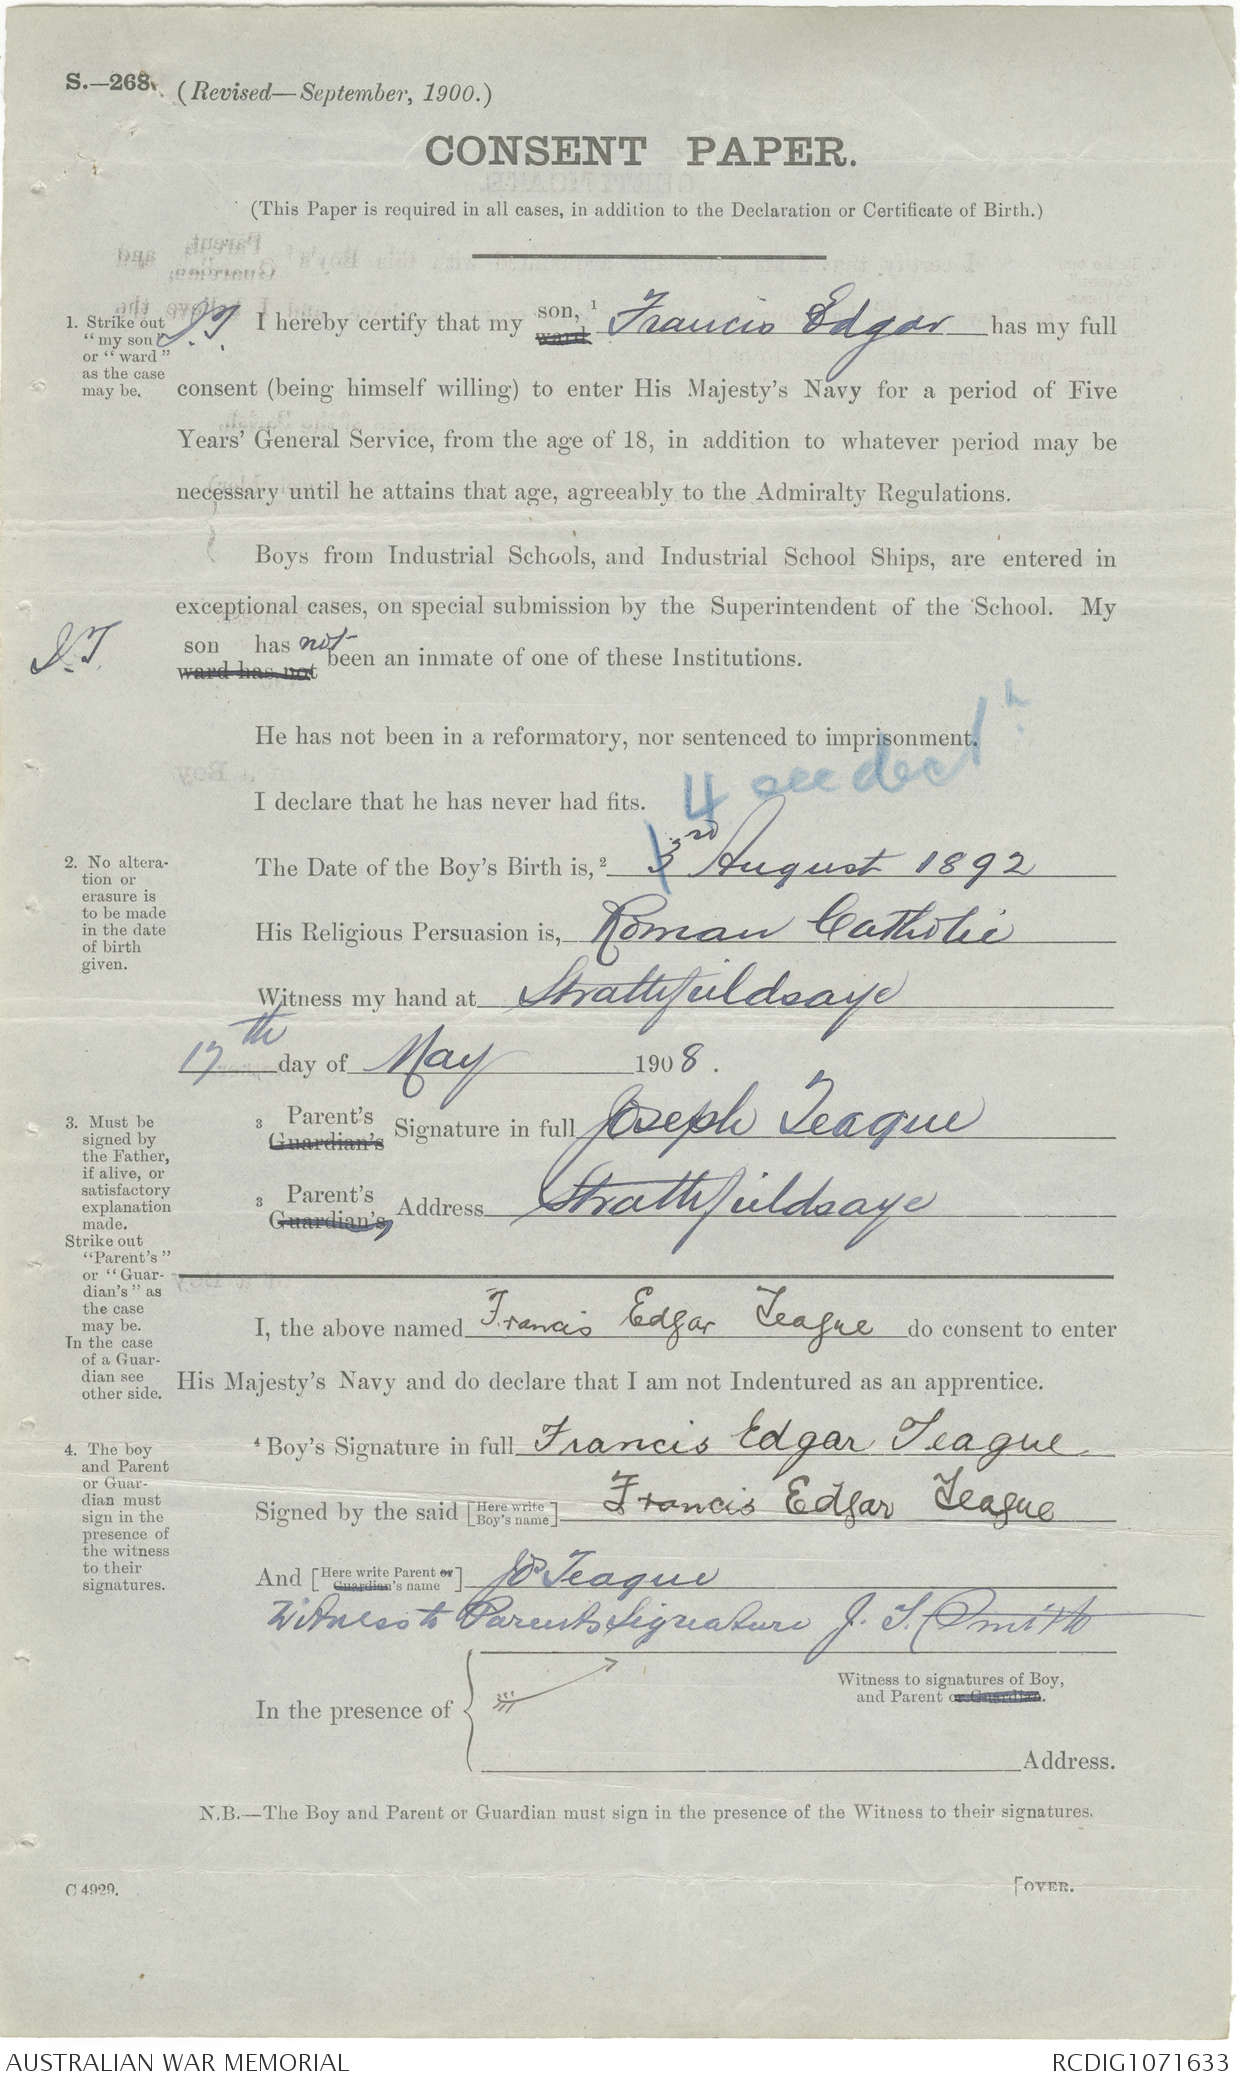 S.—268. (Revised—September, 1900.)
CONSENT PAPER.
(This Paper is required in all cases, in addition to the Declaration or Certificate of Birth.)
1. Strike out
"my son"
or "ward"
as the case
may be.
J.T. I hereby certify that my son, ward ¹ Francis Edgar has my full
consent (being himself willing) to enter His Majesty's Navy for a period of Five
Years' General Service, from the age of 18, in addition to whatever period may be
necessary until he attains that age, agreeably to the Admiralty Regulations.
Boys from Industrial Schools, and Industrial School Ships, are entered in
exceptional cases, on special submission by the Superintendent of the School. My
J.T. son has not
ward has not been an inmate of one of these Institutions.
He has not been in a reformatory, nor sentenced to imprisonment.
4 see decl
I declare that he has never had fits.
2. No altera-
tion or
erasure is
to be made
in the date
of birth
given.
The Date of the Boy's Birth is, ² 3rd August 1892
His Religious Persuasion is, Roman Catholic
Witness my hand at Strathfieldsaye
17th day of May 1908.
3. Must be
signed by
the Father,
if alive, or
satisfactory
explanation
made.
Strike out
"Parent's"
or "Guar-
dian's" as
the case
may be.
In the case
of a Guar-
dian see
other side.
³ Parent's
Guardian's Signature in full Joseph Teague
³ Parent's
Guardian's, Address Strathfieldsaye
I, the above named Francis Edgar Teague do consent to enter
His Majesty's Navy and do declare that I am not Indentured as an apprentice.
4. The boy
and Parent
or Guar-
dian must
sign in the
presence of
the witness
to their
signatures.
⁴ Boy's Signature in full Francis Edgar Teague
Signed by the said [Here write Boy's name] Francis Edgar Teague
And [Here write Parent or Guardian's name] Jos Teague
Witness to Parents Signature J. T. Smith
In the presence of
Witness to signatures of Boy,
and Parent or Guardian.
Address.
N.B.—The Boy and Parent or Guardian must sign in the presence of the Witness to their signatures.
C 4929.
[OVER.
AUSTRALIAN WAR MEMORIAL
RCDIG1071633